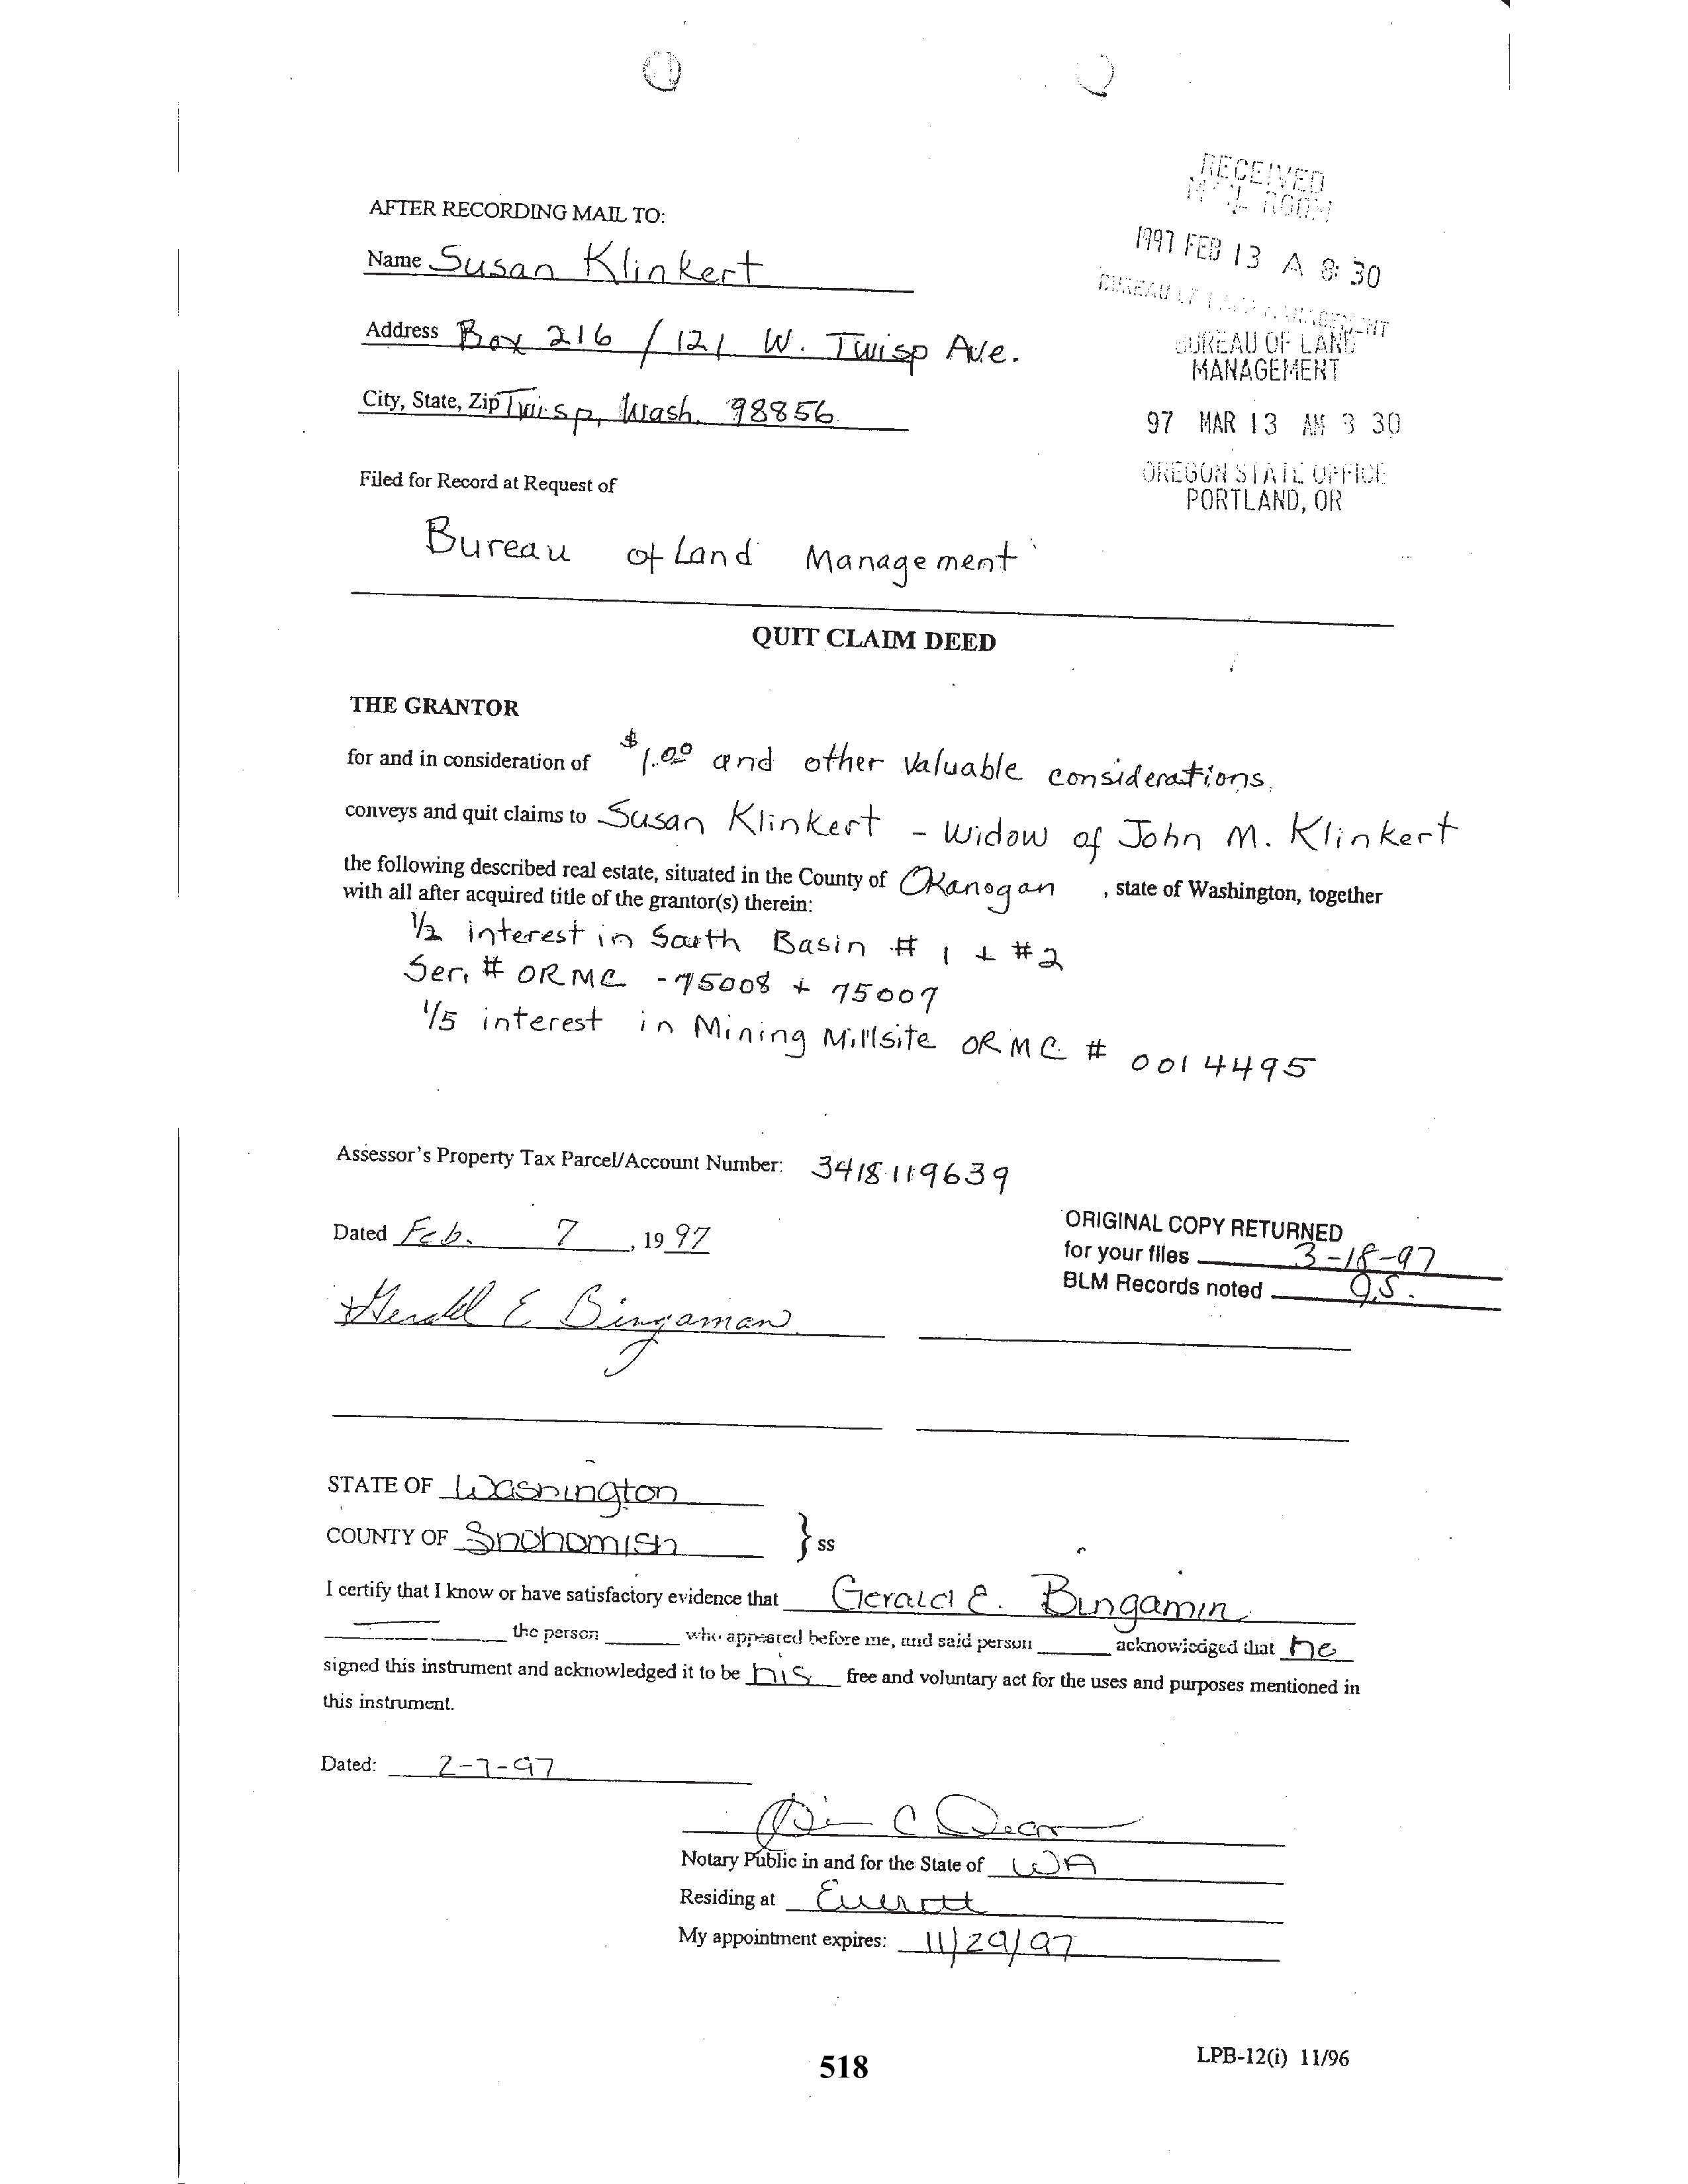 RECEIVED
MAIL ROOM
1997 FEB 13 A 8:30
BUREAU OF LAND MANAGEMENT
AFTER RECORDING MAIL TO:
Name Susan Klinkert
Address Box 216 / 121 W. Twisp Ave.
City, State, Zip Twisp, Wash. 98856
BUREAU OF LAND
MANAGEMENT
97 MAR 13 AM 30
OREGON STATE OFFICE
PORTLAND, OR
Filed for Record at Request of
Bureau of Land Management
QUIT CLAIM DEED
THE GRANTOR
for and in consideration of $1.00 and other valuable considerations.
conveys and quit claims to Susan Klinkert - Widow of John M. Klinkert
the following described real estate, situated in the County of Okanogan , state of Washington, together
with all after acquired title of the grantor(s) therein:
1/2 interest in South Basin # 1 + #2
Ser. # ORMC - 75008 + 75007
1/5 interest in Mining Millsite ORMC # 0014495
Assessor's Property Tax Parcel/Account Number: 3418119639
Dated Feb. 7, 1997
ORIGINAL COPY RETURNED
for your files 3-18-97
BLM Records noted
Gerald E Bingaman
STATE OF Washington
COUNTY OF Snohomish } ss
I certify that I know or have satisfactory evidence that Gerald E. Bingamin
the person who appeared before me, and said person acknowledged that he
signed this instrument and acknowledged it to be his free and voluntary act for the uses and purposes mentioned in
this instrument.
Dated: 2-7-97
Notary Public in and for the State of WA
Residing at Everett
My appointment expires: 11/29/97
518
LPB-12(i) 11/96